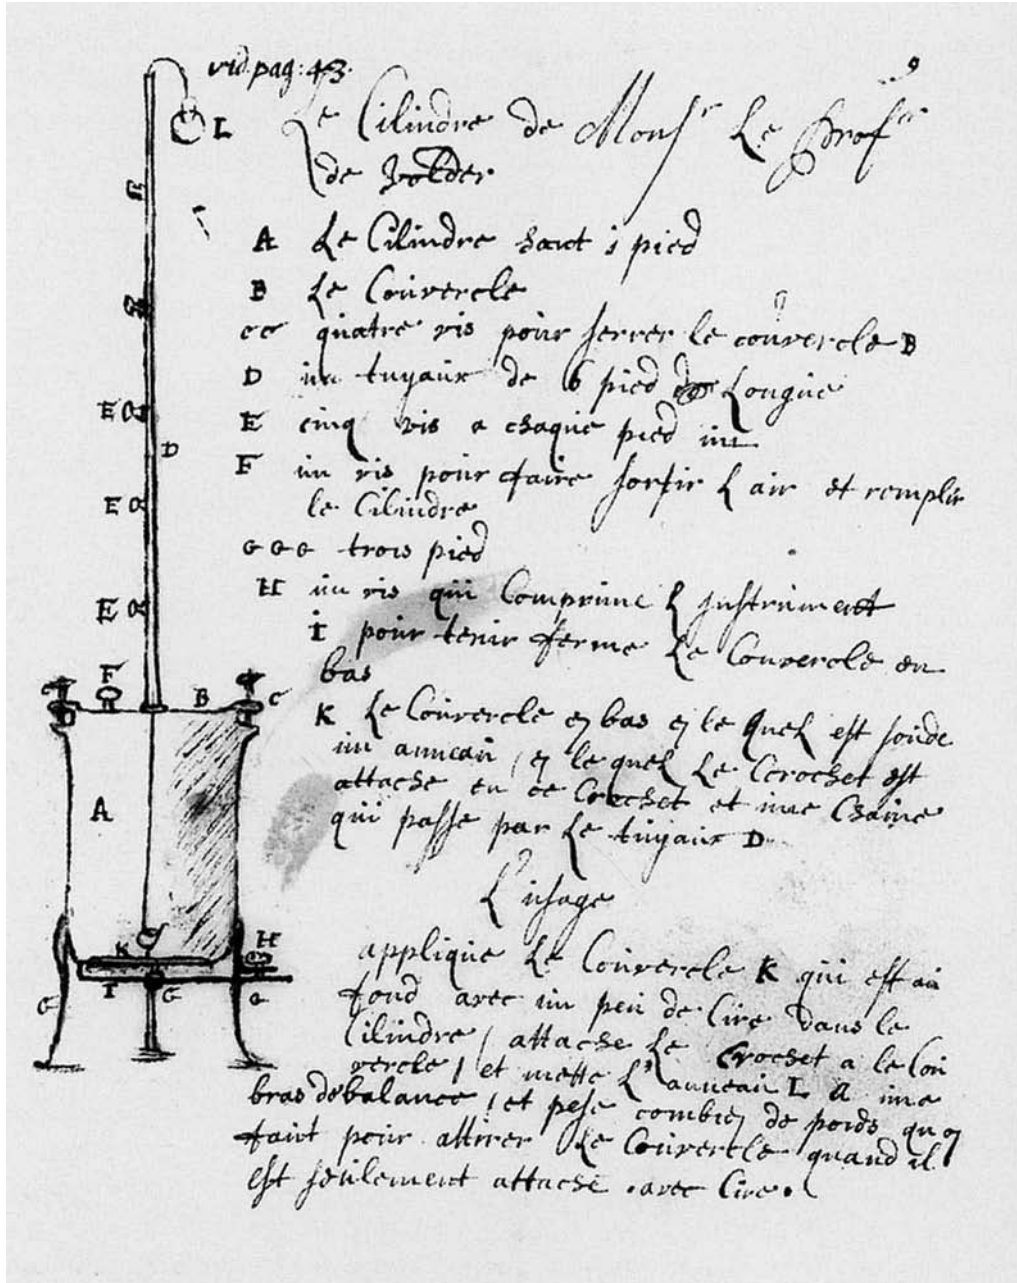 vid. pag: 43.
9
L
Le Cilindre de Monsr Le Profr
de Volder
A Le Cilindre haut 1 pied
B Le Couvercle
cc quatre vis pour serrer le couvercle B
D un tuyaux de 6 pied Longue
E cinq vis a chaque pied un
F un vis pour faire sortir L air et remplir
le Cilindre
GGG trois pied
H un vis qui Comprime L instrument
I pour tenir ferme Le Couvercle en
bas
K Le Couvercle en bas en le quel est soude
un anneau, en le quel Le Crochet est
attache en ce Crochet et une Chaine
qui passe par Le tuyaux D
L'usage
applique Le Couvercle K qui est au
fond avec un peu de Cire dans le
Cilindre, attache Le Crochet a le Cou
vercle, et mette L'anneau L a une
bras de balance, et pese combien de poids qu on
faut pour attirer Le Couvercle quand il
est seulement attache avec Cire.
E
E
E
D
F
B
C
C
A
K
H
I
G
G
G